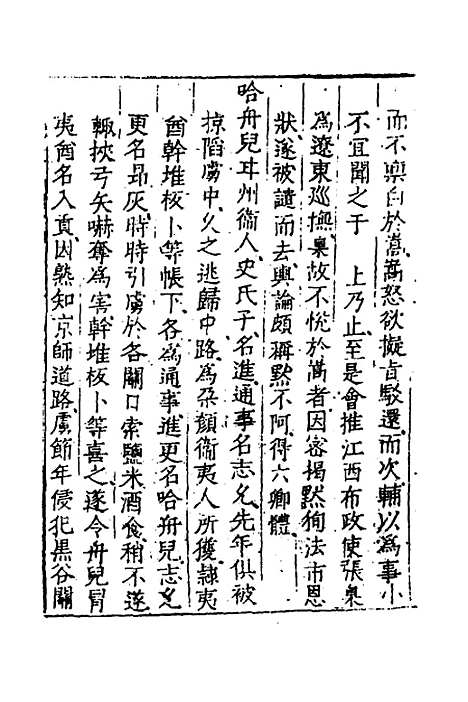 而不稟白於嵩嵩怒欲擬旨駁還而次輔以為事小
不宜聞之于　上乃止至是會推江西布政使張臬
為遼東巡撫臬故不悅於嵩者因密揭默徇法市恩
狀遂被譴而去輿論頗稱默不阿得六卿體
哈舟兒㺵州衞人史氏子名進通事名志允先年俱被
掠䧟虜中久之逃歸中路為朶顏衞夷人所獲隷夷
酋幹堆板卜等帳下各為通事進更名哈舟兒志允
更名昻灰時時引虜於各關口索鹽米酒食稍不遂
輙挾弓矢嚇奪為害幹堆板卜等喜之遂令舟兒冐
夷酋名入貢因熟知京師道路虜節年侵犯黒谷關